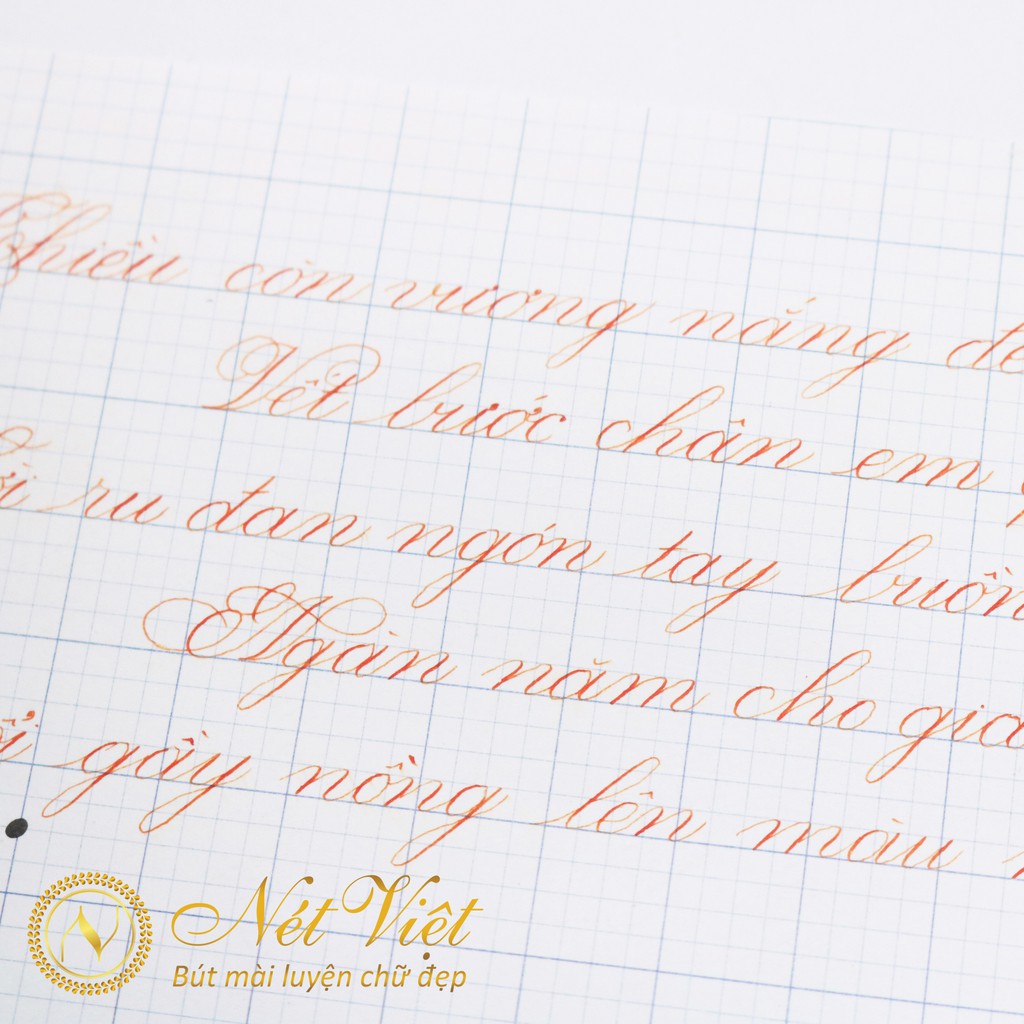 Chiều còn vương nắng để
Vết bước chân em
ru đan ngón tay buồn
Ngàn năm cho
gầy nồng lên màu
Nét Việt
Bút mài luyện chữ đẹp